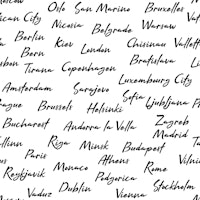 Moscow Oslo San Marino Bruxelles
Nicosia Warsaw
Berlin Belgrade
Bern Kiev London Chisinau Vallett
Lisbon Bratislava
Tirana Copenhagen
Luxembourg City
Amsterdam Sarajevo
Sofia Ljubljana
Prague Brussels Helsinki
Bucharest Andorra la Vella Zagreb
Madrid
Tallinn Riga Minsk Budapest
Paris Athens Vilnius
Reykjavik Monaco Podgorica Rome
Dublin Stockholm
Vaduz Vienna